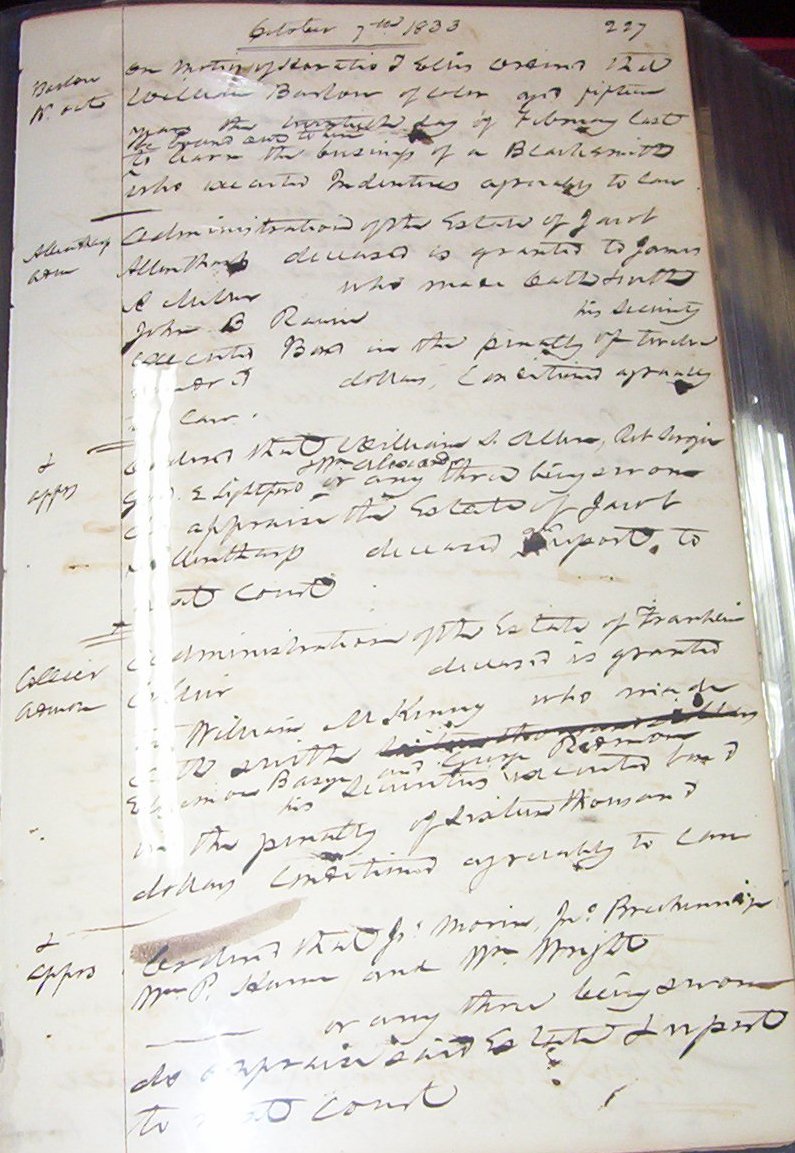 October 7th 1833 227
Barlow
on motion of Horatio J Ellis ordered that
William Barlow of color aged fifteen
years the day of February last
be bound out to him
to learn the business of a Blacksmith
who executed Indentures agreeably to law
Allentharp
adm
Administration of the Estate of Jacob
Allentharp deceased is granted to James
who made Oath & with
John B his Security
executed Bond in the penalty of twelve
dollars, Conditioned agreeably
law.
&
apprs
Ordered that William S. Allen,
& Wm Alexander
E Lightford or any three being sworn
do appraise the Estate of Jacob
Allentharp deceased & report to
next Court
Collier
admon
Administration of the Estate of Franklin
Collier deceased is granted
to William McKinny who made
oath & with
and George Redmon
his Securities executed bond
in the penalty of sixteen thousand
dollars Conditioned agreeably to law
&
apprs
Ordered that Js Morin, Jno Breckenridge
Wm P. and Wm Wright
or any three being sworn
do appraise said Estate & report
to next Court